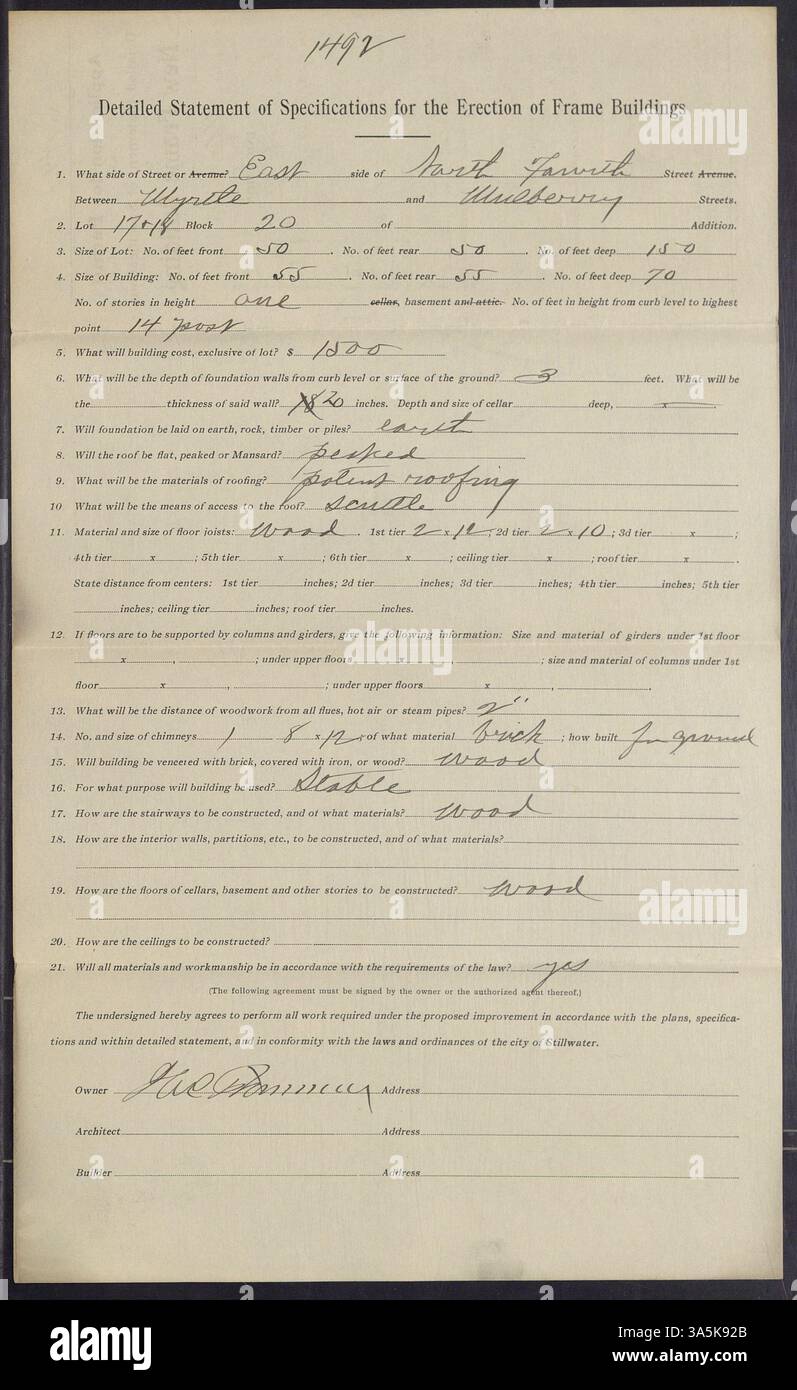 1492
Detailed Statement of Specifications for the Erection of Frame Buildings
1. What side of Street or Avenue? East side of North Fourth Street Avenue.
Between Myrtle and Mulberry Streets.
2. Lot 17+18 Block 20 of Addition.
3. Size of Lot: No. of feet front 50. No. of feet rear 50. No. of feet deep 150
4. Size of Building: No. of feet front 55. No. of feet rear 55. No. of feet deep 70
No. of stories in height one cellar, basement and attic. No. of feet in height from curb level to highest
point 14 post
5. What will building cost, exclusive of lot? $ 1500
6. What will be the depth of foundation walls from curb level or surface of the ground? 3 feet. What will be
the thickness of said wall? 20 inches. Depth and size of cellar deep, x.
7. Will foundation be laid on earth, rock, timber or piles? earth
8. Will the roof be flat, peaked or Mansard? peaked
9. What will be the materials of roofing? patent roofing
10. What will be the means of access to the roof? scuttle
11. Material and size of floor joists: wood. 1st tier 2 x 12; 2d tier 2 x 10; 3d tier x ;
4th tier x ; 5th tier x ; 6th tier x ; ceiling tier x ; roof tier x .
State distance from centers: 1st tier inches; 2d tier inches; 3d tier inches; 4th tier inches; 5th tier
inches; ceiling tier inches; roof tier inches.
12. If floors are to be supported by columns and girders, give the following information: Size and material of girders under 1st floor
x , ; under upper floors x , ; size and material of columns under 1st
floor x , ; under upper floors x , .
13. What will be the distance of woodwork from all flues, hot air or steam pipes? 2"
14. No. and size of chimneys 1 8 x 12; of what material brick; how built ground
15. Will building be veneered with brick, covered with iron, or wood? wood
16. For what purpose will building be used? Stable
17. How are the stairways to be constructed, and of what materials? wood
18. How are the interior walls, partitions, etc., to be constructed, and of what materials?
19. How are the floors of cellars, basement and other stories to be constructed? wood
20. How are the ceilings to be constructed?
21. Will all materials and workmanship be in accordance with the requirements of the law? yes
(The following agreement must be signed by the owner or the authorized agent thereof.)
The undersigned hereby agrees to perform all work required under the proposed improvement in accordance with the plans, specifica-
tions and within detailed statement, and in conformity with the laws and ordinances of the city of Stillwater.
Owner Address
Architect Address
Builder Address
alamy
Image ID: 3A5K92B
www.alamy.com